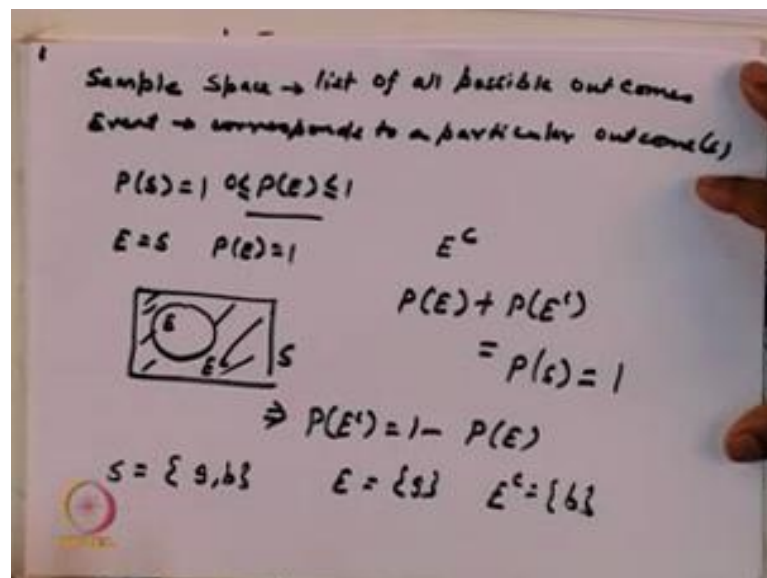 1
Sample Space → list of all possible outcomes
Event → corresponds to a particular outcome(s)
P(S) = 1 0 ≤ P(E) ≤ 1
E = S P(E) = 1 E^c
P(E) + P(E^c)
= P(S) = 1
E
E^c S
⇒ P(E^c) = 1 - P(E)
S = { g, b } E = {g} E^c = {b}